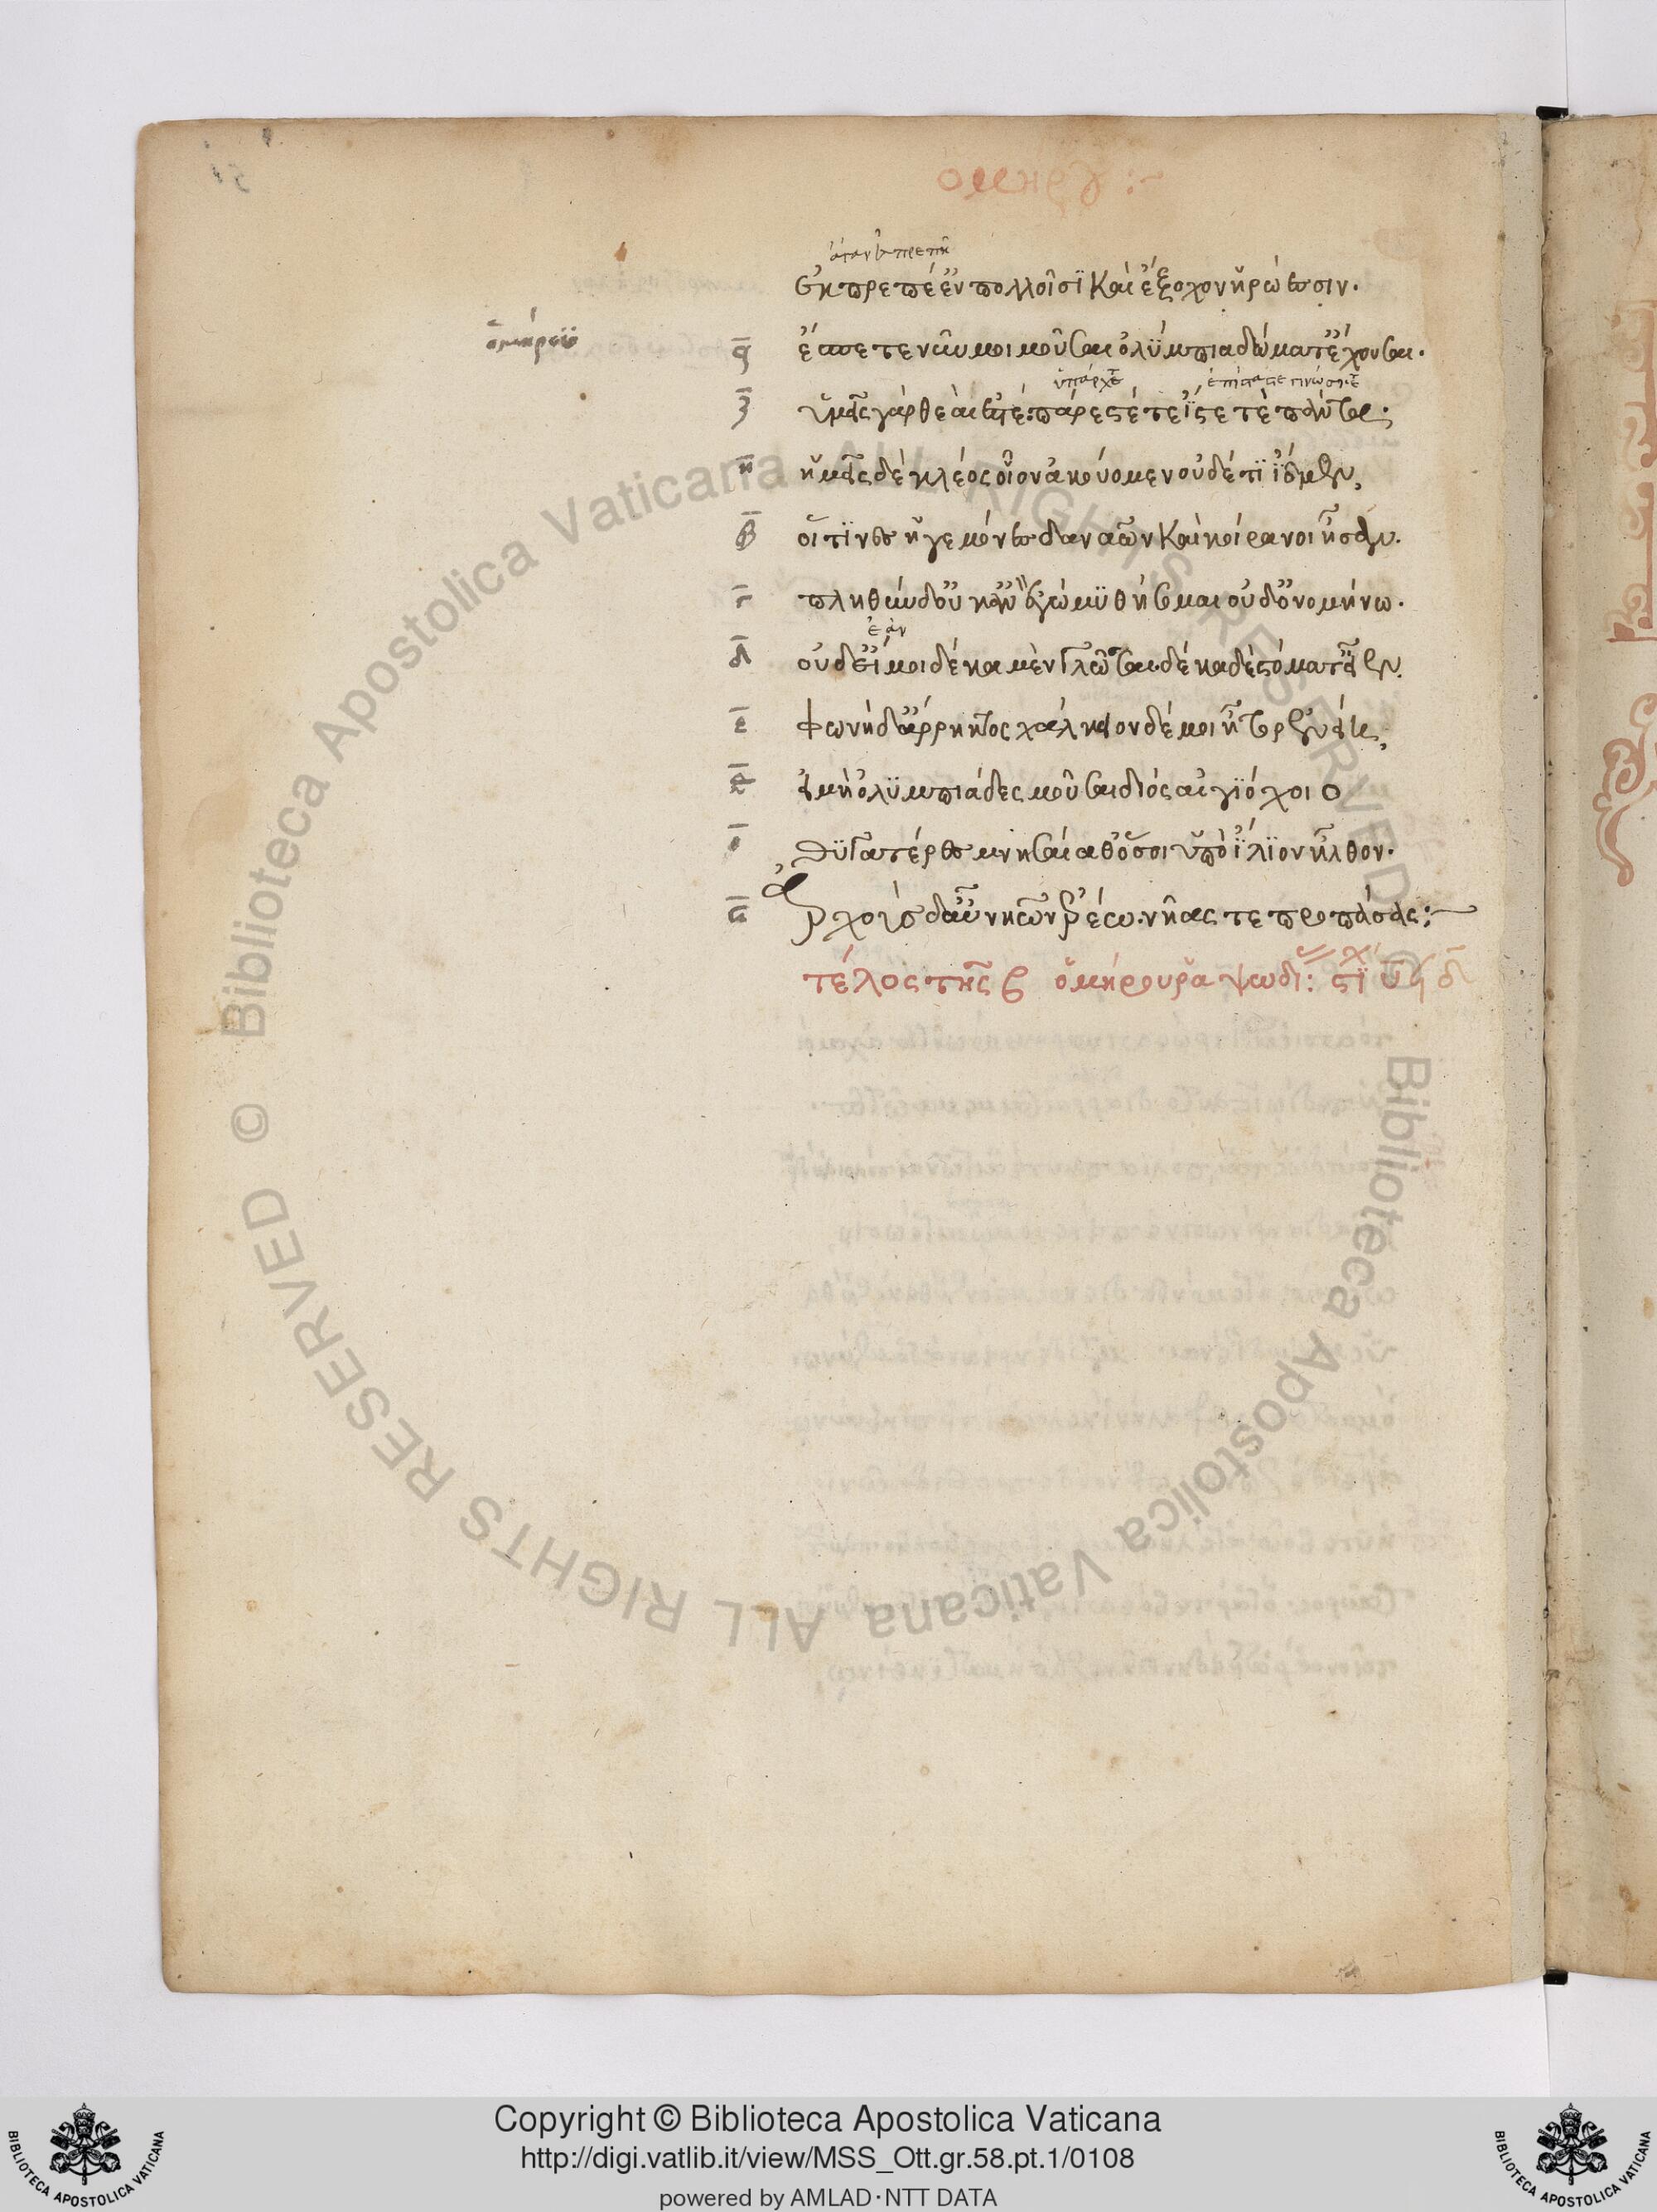 ἐκπρεπέ ἐν πολλοῖσϊ καὶ ἔξοχον ἡρώεσσιν.
ἔσπετε νῦν μοι μοῦσαι ὀλύμπια δώματ' ἔχουσαι.
ὑμεῖς γὰρ θεαί ἐστέ. πάρεστέ τε ἴστε τὲ πάντα.
ἡμεῖς δὲ κλέος οἶον ἀκούομεν οὐδέ τϊ ἴδμεν,
οἵ τϊνες ἡγεμόνες δαναῶν καὶ κοίρανοι ἦσαν.
πληθὺν δ' οὐκ ἂν ἐγὼ μϋθήσομαι οὐδ' ὀνομήνω.
ἐὰν
οὐδ' εἴ μοι δέκα μὲν γλῶσσαι. δέκα δὲ στόματ' εἶεν.
φωνὴ δ' ἄρρηκτος χάλκεον δέ μοι ἦτορ ἐνείη,
εἰ μὴ ὀλϋμπιάδες μοῦσαι διὸς αἰγϊόχοιο
θϋγατέρες μνησαίαθ' ὅσοι ὑπὸ ἴλϊον ἦλθον.
ἀρχοὺς δ' αὖ νηῶν ἐρέω. νῆας τε προπάσας:
τέλος τῆς β ὁμήρου ῥαψωδι:
Copyright © Biblioteca Apostolica Vaticana
http://digi.vatlib.it/view/MSS_Ott.gr.58.pt.1/0108
powered by AMLAD·NTT DATA
BIBLIOTECA APOSTOLICA VATICANA
BIBLIOTECA APOSTOLICA VATICANA
© Biblioteca Apostolica Vaticana ALL RIGHTS RESERVED © Biblioteca Apostolica Vaticana ALL RIGHTS RESERVED